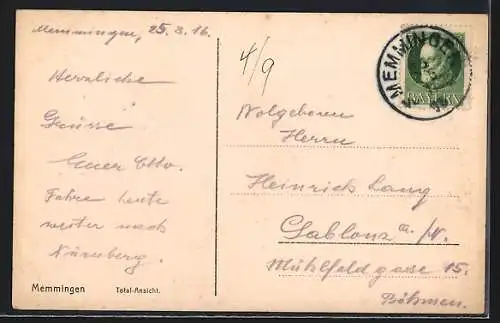 Memmingen, 25.3.16.
Herzliche
Grüsse
Euer Otto.
Fahre heute
weiter nach
Nürnberg.
Memmingen Total-Ansicht.
4/9
MEMMINGEN
BAYERN
Wolgeboren
Herrn
Heinrich Lang
Gablonz a./N.
Mühlfeldgasse 15.
Böhmen.